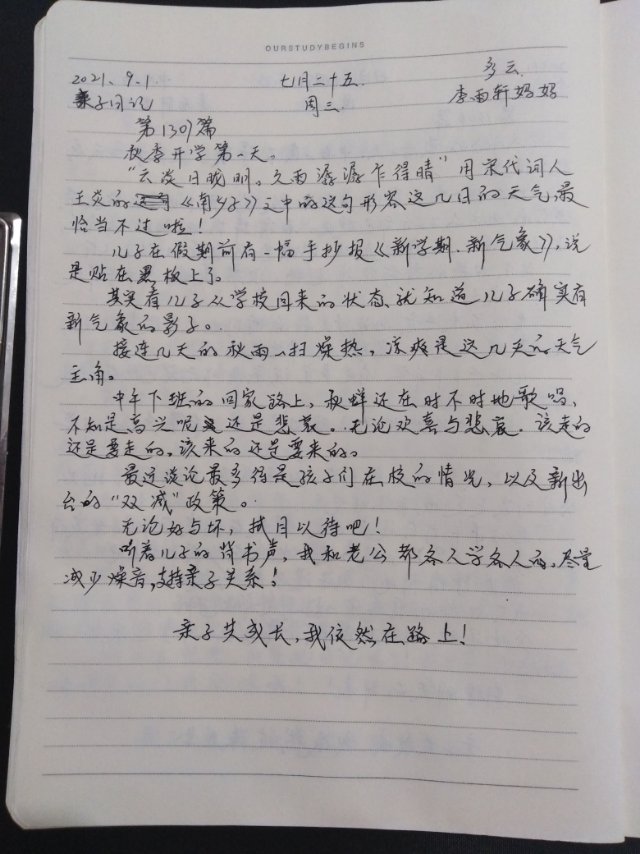 OURSTUDYBEGINS
2021.9.1 七月二十五 多云
亲子日记 周三 李雨轩妈妈
第1307篇
秋季开学第一天。
“云淡日晓明。久雨潺潺乍得晴”用宋代词人
王炎的《南乡子》之中的这句形容这几日的天气,最
恰当不过啦!
儿子在假期前有一幅手抄报《新学期.新气象》,说
是贴在黑板上了。
其实看儿子从学校回来的状态,就知道儿子确实有
新气象的影子。
接连几天的秋雨一扫燥热,凉爽是这几天的天气
主角。
中午下班的回家路上,秋蝉还在时不时地歌唱,
不知是高兴呢还是悲哀。无论欢喜与悲哀.该走的
还是要走的,该来的还是要来的。
最近谈论最多得是孩子们在校的情况,以及新出
台的“双减”政策。
无论好与坏,拭目以待吧!
听着儿子的背书声,我和老公都各人学各人的,尽量
减少燥音,支持亲子关系!
亲子共成长,我依然在路上!